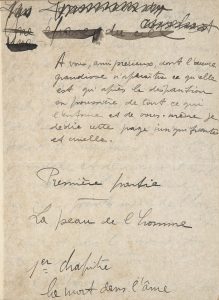 du ciel
A vous, ami précieux, dont l'œuvre
grandiose n'apparaîtra ce qu'elle
est qu'après la disparition
en poussière de tout ce qui
l'entoure et de vous-même, je
dédie cette page
et cruelle.
Première partie
La peau de l'homme
1er chapitre
La mort dans l'âme